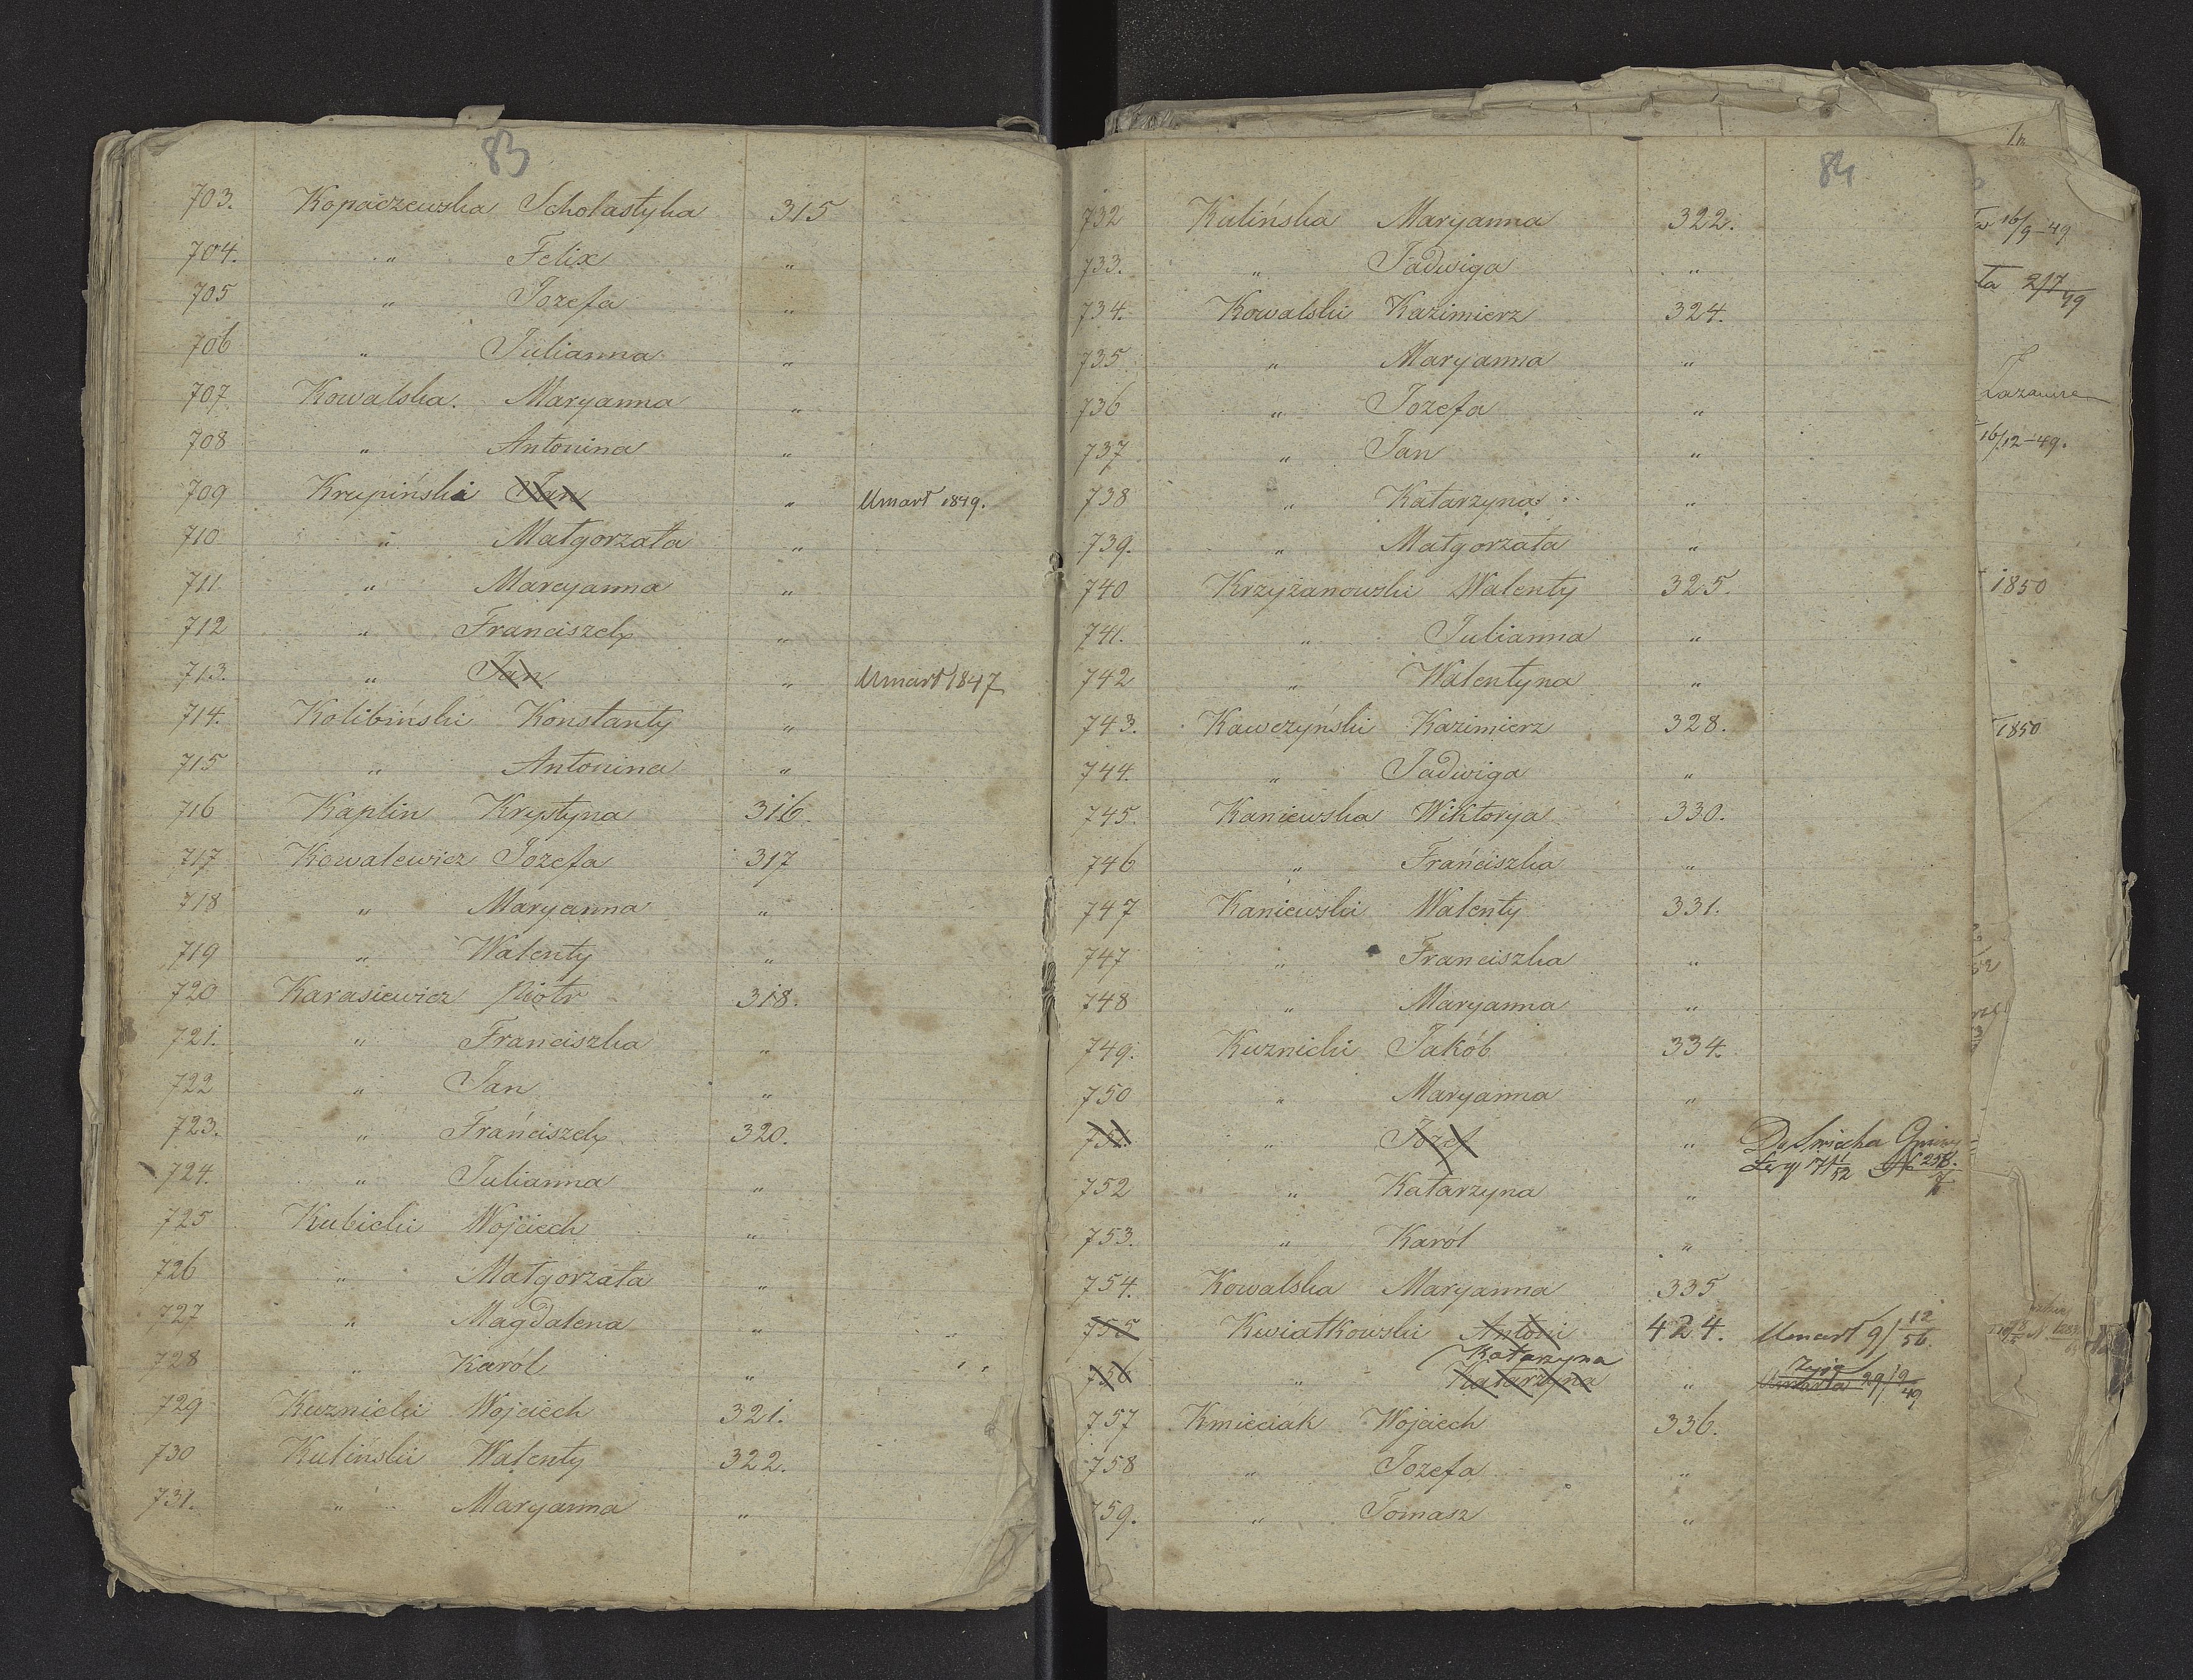 83
703. Kopaczewska Scholastyka 315
704. " Felix "
705 " Jozefa "
706 " Julianna "
707 Kowalska. Maryanna "
708 " Antonina "
709 Krupiński Jan " Umarł 1849.
710 " Małgorzata "
711 " Marcyanna "
712 " Franciszek "
713. " Jan " Umarł 1847
714. Kolibiński Konstanty "
715 " Antonina "
716 Kaplin Krystyna 316.
717 Kowalewicz Jozefa 317
718 " Maryanna "
719 " Walenty "
720 Karasiewicz Piotr 318.
721. " Franciszka "
722 " Jan "
723. " Franciszek 320.
724. " Julianna "
725 Kubicki Wojciech "
726 " Małgorzata "
727 " Magdalena "
728 " Karól "
729 Kuznicki Wojciech 321.
730 Kuliński Walenty 322.
731. " Maryanna "
84
732 Kulińska Maryanna 322.
733. " Jadwiga "
734. Kowalski Kazimierz 324.
735 " Maryanna "
736 " Jozefa "
737 " Jan "
738 " Katarzyna "
739. " Małgorzata "
740 Krzyżanowski Walenty 325.
741. " Julianna "
742 " Walentyna "
743. Kawczyński Kazimierz 328.
744. " Jadwiga "
745. Kaniewska Wiktorya 330.
746 " Franciszka "
747 Kaniewski Walenty 331.
747 " Franciszka "
748 " Maryanna "
749. Kuznicki Jakób 334.
750 " Maryanna "
751. " Jozef " Do Gminy
752 " Katarzyna " № 258.
753. " Karól "
754. Kowalska Maryanna 335
755 Kwiatkowski Antoni 424. Umarł 9/12 56.
Katarzyna żyje
756 " Katarzyna " Umarła 29/9 49
757 Kmieciak Wojciech 336.
758 " Jozefa "
759. " Tomasz "
16/9-49
ta 2/7 49
16/12-49.
1850
1850